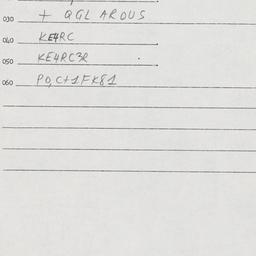 030 + QGL AROUS
040 KE4RC
050 KE4RC3R
060 PO,C+1FK81